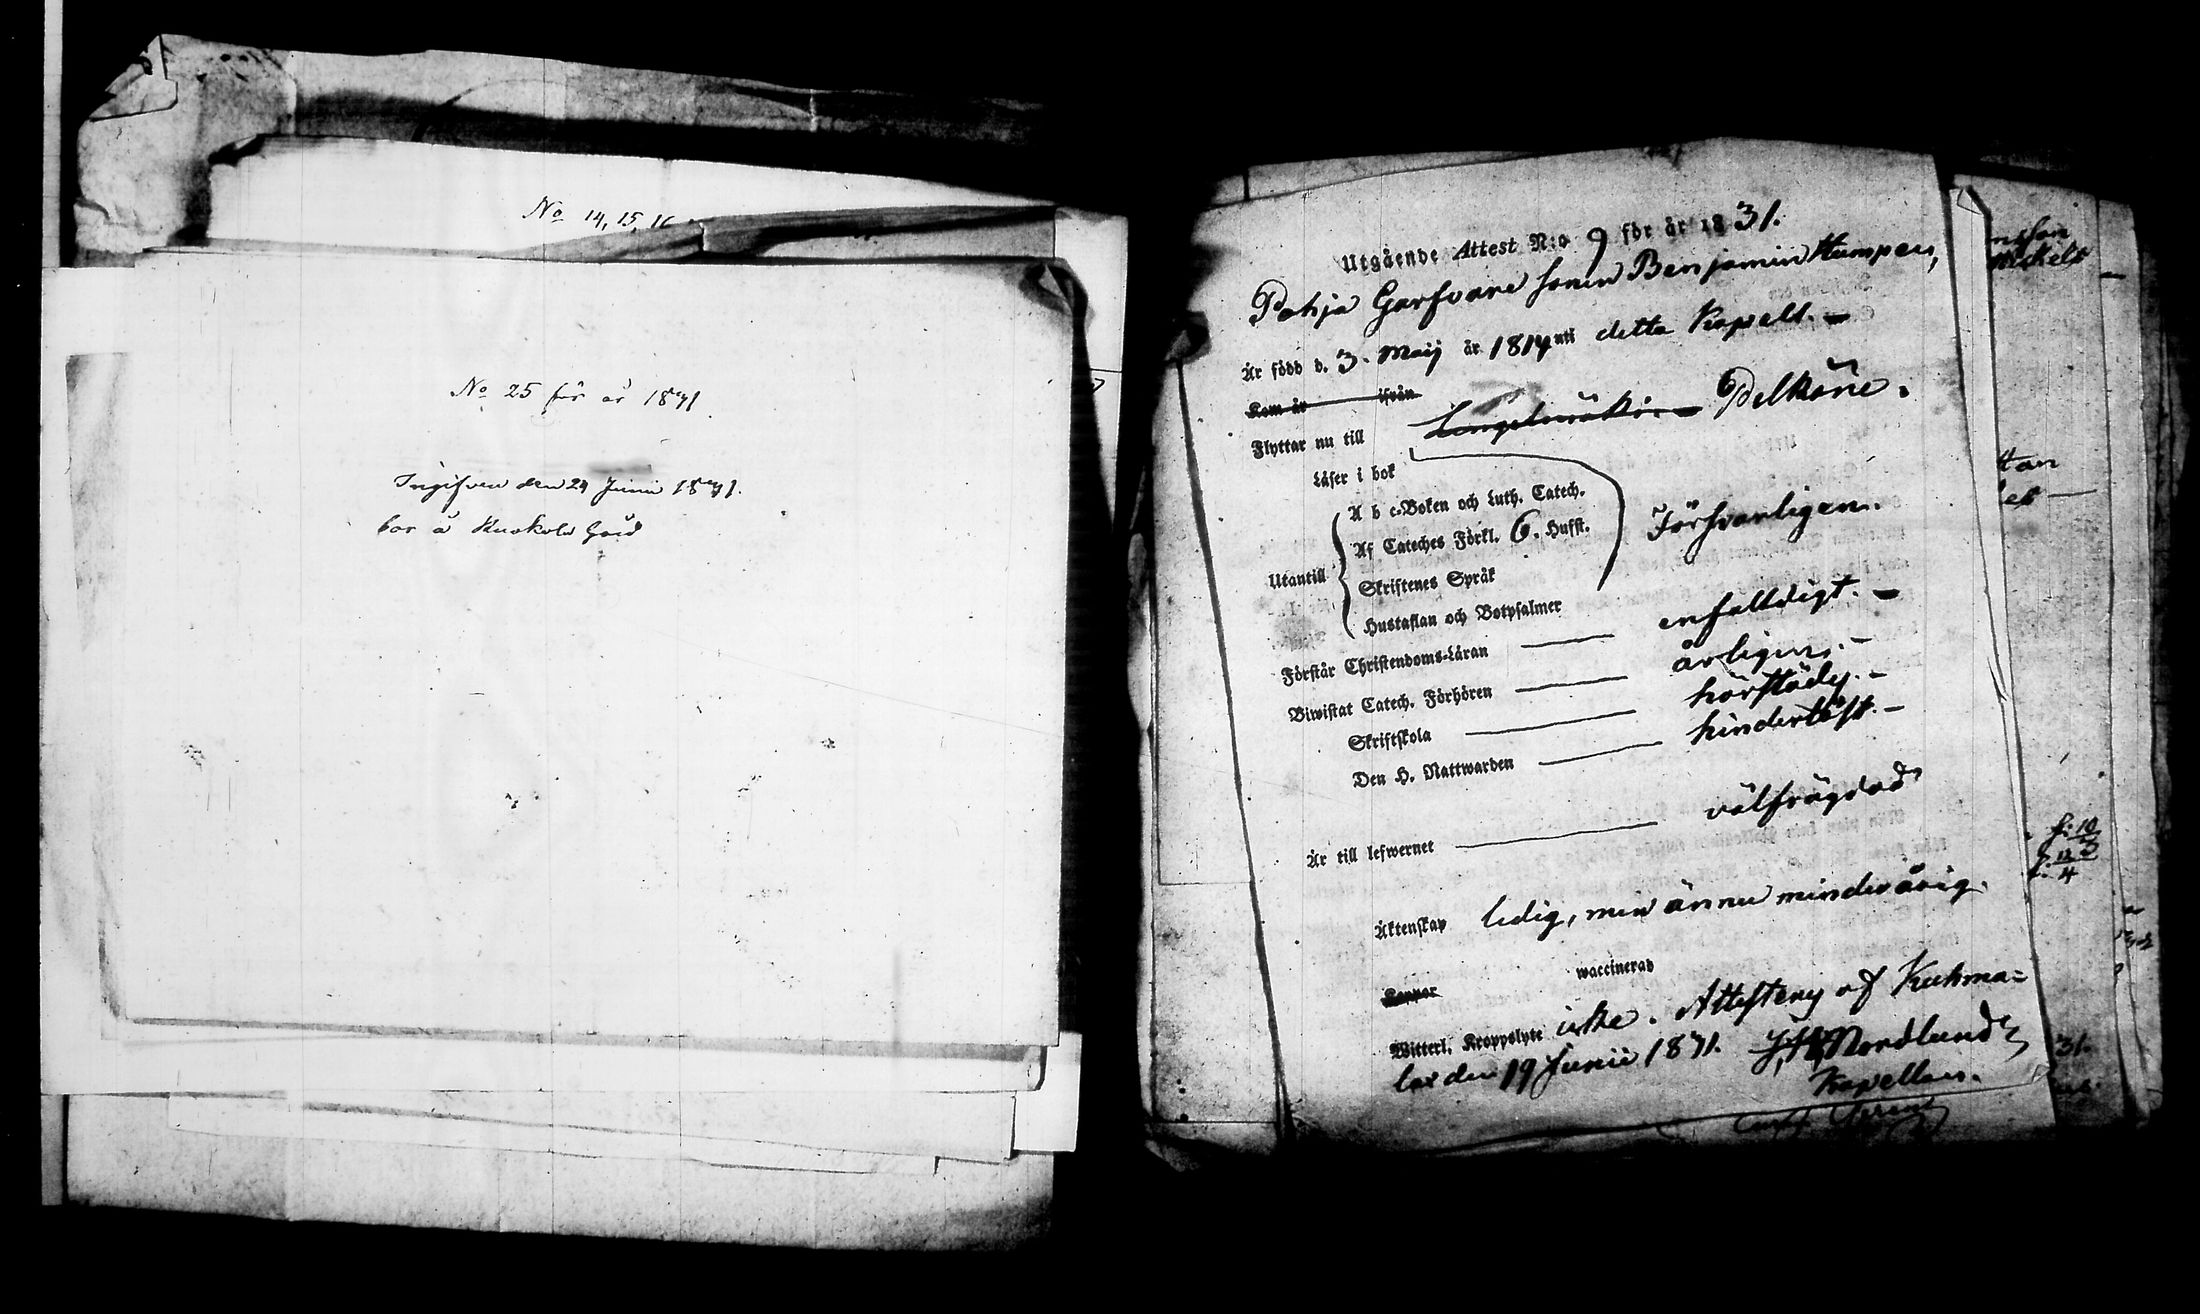 No 14, 15, 16
No 25 för år 1831
Ingifven den 24 Junii 1831.
bor å Kuokola Gård
Utgående Attest N:o 9 för år 1831.
Pohja Garfvare sonen Benjamin Humpen,
Är född d. 3. Maij år 1814 uti detta Kapell.
Kom år ifrån
Flyttar nu till Lengelmäki Pelkäne.
Läser i bok
A b c-Boken och Luth. Catech.
Af Cateches Förkl. 6. Hufst. Försvarligen.
Utantill
Skriftenes Språk
Hustaflan och Botpsalmer
Förstår Christendoms-Läran enfalldigt.
Biwistat Catech. Förhören årligen.
Skriftskola
Den H. Nattwarden hinderlöst.
Är till lefwernet välfrägdad
Äktenskap ledig, men ännu minderårig.
Koppor waccinerad
Witterl. Kroppslyte icke. Attesteras af Kuhma=
lax den 19 Junii 1831. Nordlund
Kapellan.
31.